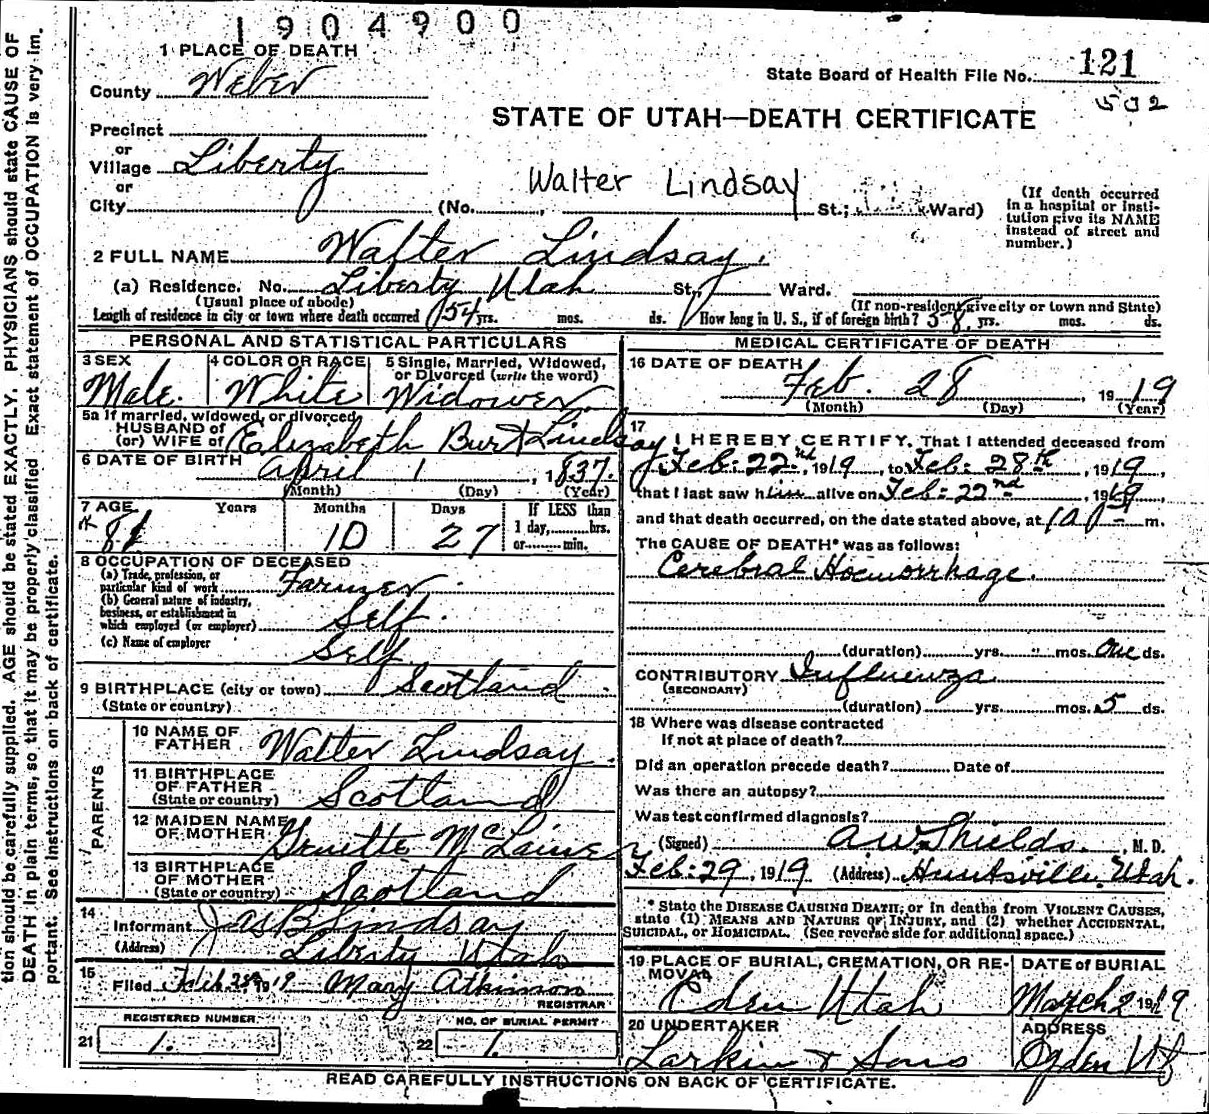 1904900
1 PLACE OF DEATH
County Weber
State Board of Health File No. 121
502
STATE OF UTAH—DEATH CERTIFICATE
Precinct
or
Village Liberty
or
City
Walter Lindsay
(No. , St.; Ward)
(If death occurred in a hospital or insti-
tution give its NAME
instead of street and
number.)
2 FULL NAME Walter Lindsay.
(a) Residence. No. Liberty Utah St., Ward.
(Usual place of abode)
(If non-resident give city or town and State)
Length of residence in city or town where death occurred 54 yrs. mos. ds. How long in U. S., if of foreign birth? 58 yrs. mos. ds.
PERSONAL AND STATISTICAL PARTICULARS
3 SEX
Male.
4 COLOR OR RACE
White
5 Single, Married, Widowed,
or Divorced (write the word)
Widower
5a If married, widowed, or divorced
HUSBAND of
(or) WIFE of Elizabeth Burt Lindsay
6 DATE OF BIRTH April 1, 1837.
(Month) (Day) (Year)
7 AGE Years Months Days
81 10 27
If LESS than
1 day, hrs.
or min.
8 OCCUPATION OF DECEASED
(a) Trade, profession, or
particular kind of work Farmer.
(b) General nature of industry,
business, or establishment in
which employed (or employer) Self.
(c) Name of employer Self
9 BIRTHPLACE (city or town) Scotland
(State or country)
PARENTS
10 NAME OF
FATHER Walter Lindsay.
11 BIRTHPLACE
OF FATHER
(State or country) Scotland
12 MAIDEN NAME
OF MOTHER McLaine
13 BIRTHPLACE
OF MOTHER
(State or country) Scotland
14
Informant Jas B Lindsay
(Address) Liberty Utah
15
Filed Feb. 28 1919 Mary Atkinson
REGISTRAR
REGISTERED NUMBER
21 1.
NO. OF BURIAL PERMIT
22 1.
MEDICAL CERTIFICATE OF DEATH
16 DATE OF DEATH
Feb. 28, 1919
(Month) (Day) (Year)
17
I HEREBY CERTIFY, That I attended deceased from
Feb: 22nd, 1919, to Feb: 28th, 1919,
that I last saw him alive on Feb: 22nd, 1919,
and that death occurred, on the date stated above, at m.
The CAUSE OF DEATH* was as follows:
Cerebral Hoemorrhage.
(duration) yrs. mos. one ds.
CONTRIBUTORY Influenza
(SECONDARY)
(duration) yrs. mos. 5 ds.
18 Where was disease contracted
If not at place of death?
Did an operation precede death? Date of
Was there an autopsy?
Was test confirmed diagnosis?
(Signed) A W Shields., M. D.
Feb: 29, 1919 (Address) Huntsville, Utah.
* State the DISEASE CAUSING DEATH; or in deaths from VIOLENT CAUSES,
state (1) MEANS AND NATURE OF INJURY, and (2) whether ACCIDENTAL,
SUICIDAL, or HOMICIDAL. (See reverse side for additional space.)
19 PLACE OF BURIAL, CREMATION, OR RE-
MOVAL
Eden Utah
DATE of BURIAL
March 2 1919
20 UNDERTAKER
Larkin & Sons
ADDRESS
Ogden Ut
READ CAREFULLY INSTRUCTIONS ON BACK OF CERTIFICATE.
tion should be carefully supplied. AGE should be stated EXACTLY. PHYSICIANS should state CAUSE OF
DEATH in plain terms, so that it may be properly classified Exact statement of OCCUPATION is very im.
portant. See instructions on back of certificate.